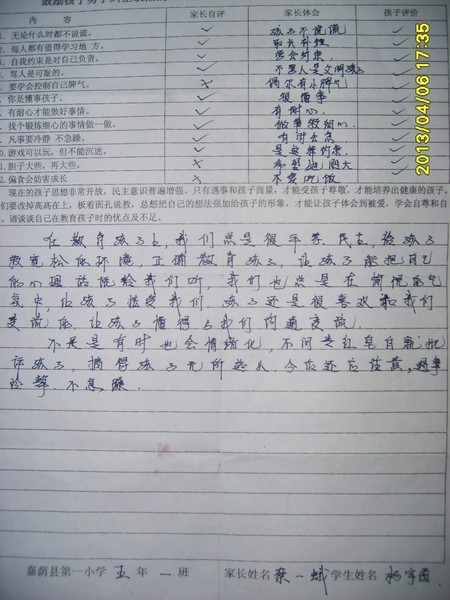 内 容 家长自评 家长体会 孩子评价
. 无论什么时都不说谎。 ✓ 孩子不说谎 ✓
. 每人都有值得学习地 方。 ✓ 取长补短 ✓
. 自我约束是对自己负责。 ✓ 学会约束 ✓
. 骂人是可耻的。 ✓ 不骂人是文明孩子 ✓
. 要学会控制自己脾气。 × 偶尔有小脾气 ✓
. 你是懂事孩子。 ✓ 很懂事 ✓
. 有耐心才能做好事情。 ✓ 有耐心. ✓
. 找个锻炼细心的事情做一做。 ✓ 做事较细心. ✓
. 凡事要冷静 不急躁。 ✓
0. 游戏可以玩,但不能沉迷。 ✓ ✓
1. 胆子大些,再大些。 × 希望她胆大 ✓
2. 偏食会妨害成长 × ✓
现在的孩子思想非常开放,民主意识普遍增强。只有遇事和孩子商量,才能受孩子尊敬,才能培养出健康的孩子。
们要改掉高高在上,板着面孔说教,总想把自己的想法强加给孩子的形象,才能让孩子体会到被爱,学会自尊和自
。请谈谈自己在教育孩子时的优点及不足。
在教育孩子上,我们总是很平等、民主,给孩子
较宽松的环境,正确教育孩子,让孩子能把自己
的心理话说给我们听,我们也总是在愉悦的气
氛中,让孩子接受我们.孩子还是很喜欢和我们
交流的,让孩子懂得与我们沟通交流.
不足是有时也会情绪化,不问青红皂白就批
评孩子,搞得孩子无所适从,今后还应注意,遇事
冷静 不急躁.
嘉荫县第一小学 五 年 一 班 家长姓名 学生姓名
2013/04/06 17:35